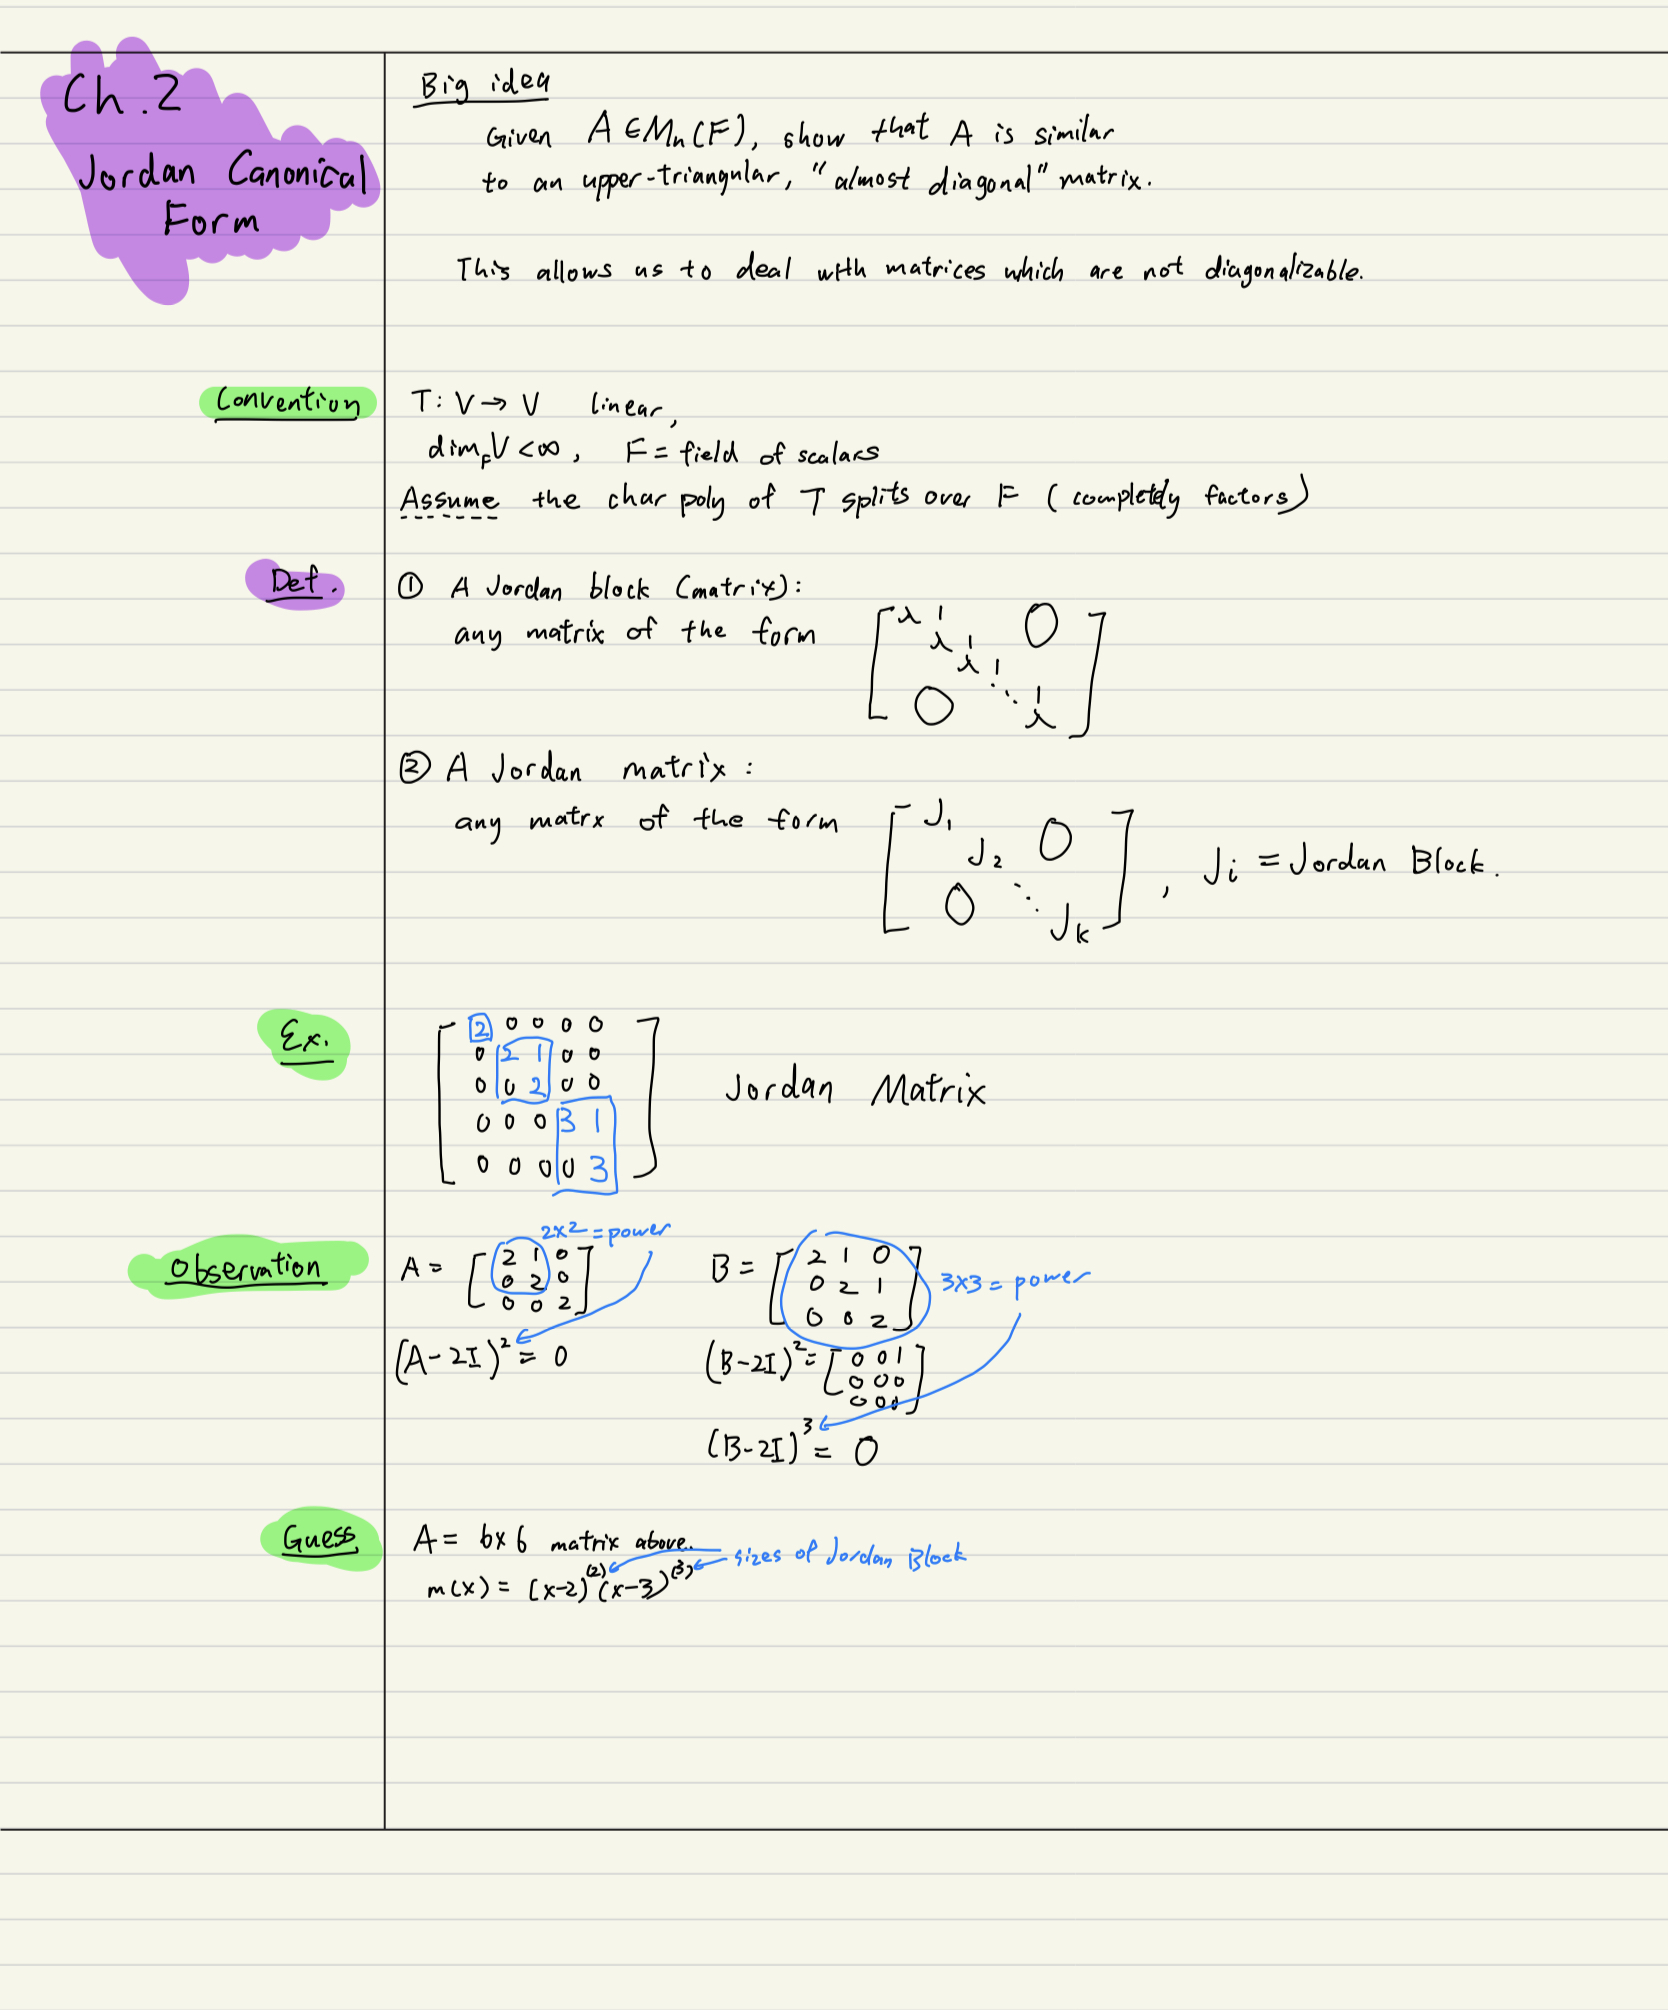 Ch.2
Jordan Canonical
Form
Big idea
Given A ∈ Mn(F), show that A is similar
to an upper-triangular, "almost diagonal" matrix.
This allows us to deal with matrices which are not diagonalizable.
Convention
T: V → V linear,
dim_F V < ∞, F = field of scalars
Assume the char poly of T splits over F (completely factors)
Def.
① A Jordan block (matrix):
any matrix of the form
[ λ 1 0
λ 1
λ 1
⋱ 1
0 λ ]
② A Jordan matrix :
any matrx of the form
[ J₁
J₂ 0
0 ⋱
J_k ] , J_i = Jordan Block.
Ex.
[ 2 0 0 0 0
0 2 1 0 0
0 0 2 0 0
0 0 0 3 1
0 0 0 0 3 ]
Jordan Matrix
Observation
2x2 = power
A = [ 2 1 0
0 2 0
0 0 2 ]
(A-2I)² = 0
B = [ 2 1 0
0 2 1
0 0 2 ]
3x3 = power
(B-2I)² = [ 0 0 1
0 0 0
0 0 0 ]
(B-2I)³ = 0
Guess
A = 6x6 matrix above.
sizes of Jordan Block
m(x) = (x-2)^(2) (x-3)^(3)